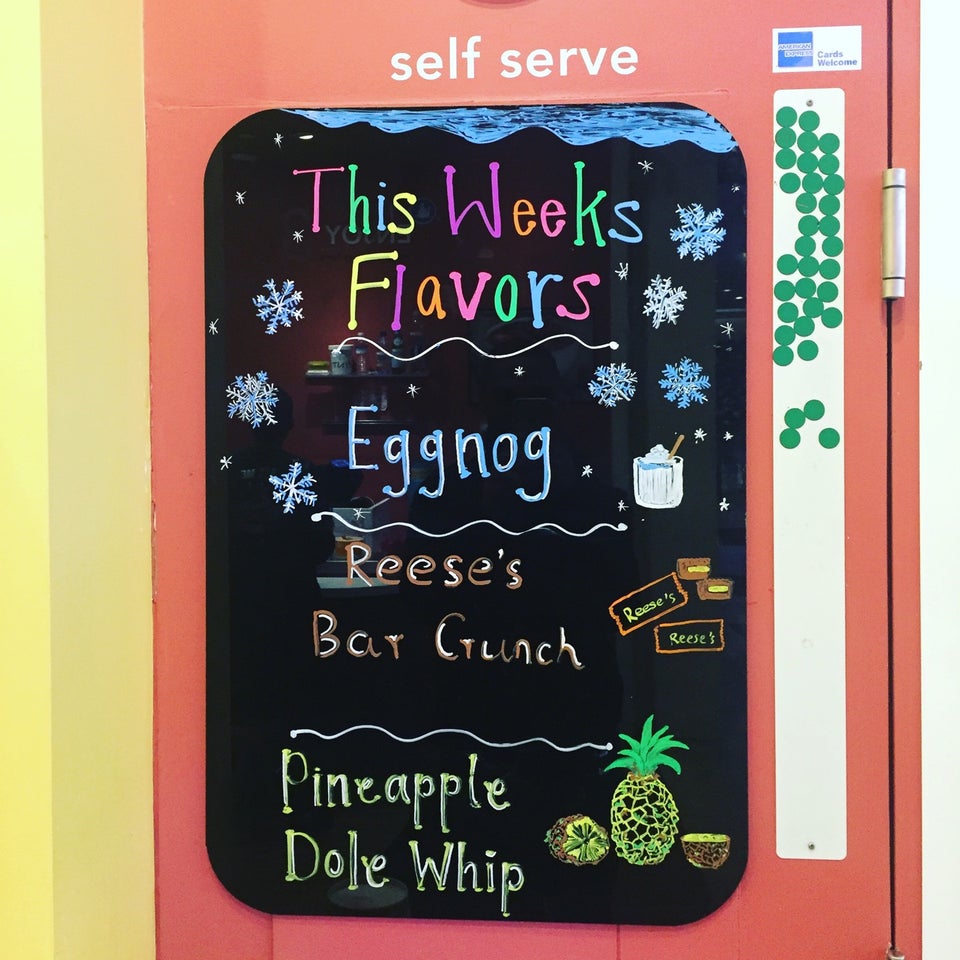 self serve
AMERICAN
EXPRESS
Cards
Welcome
This Weeks
Flavors
Eggnog
Reese's
Bar Crunch
Reese's
Reese's
Pineapple
Dole Whip